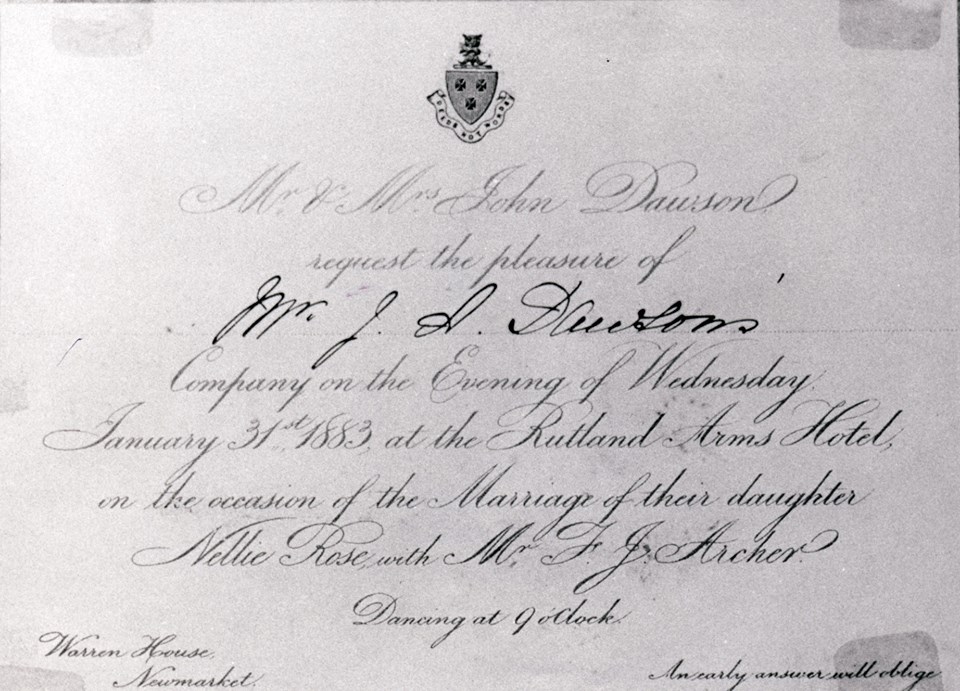 DEEDS NOT WORDS
Mr. & Mrs. John Dawson
request the pleasure of
Mr. J. Dawson's
Company on the Evening of Wednesday,
January 31st, 1883, at the Rutland Arms Hotel,
on the occasion of the Marriage of their daughter
Nellie Rose, with Mr. F. J. Archer.
Dancing at 9 o'Clock.
Warren House,
Newmarket.
An early answer will oblige